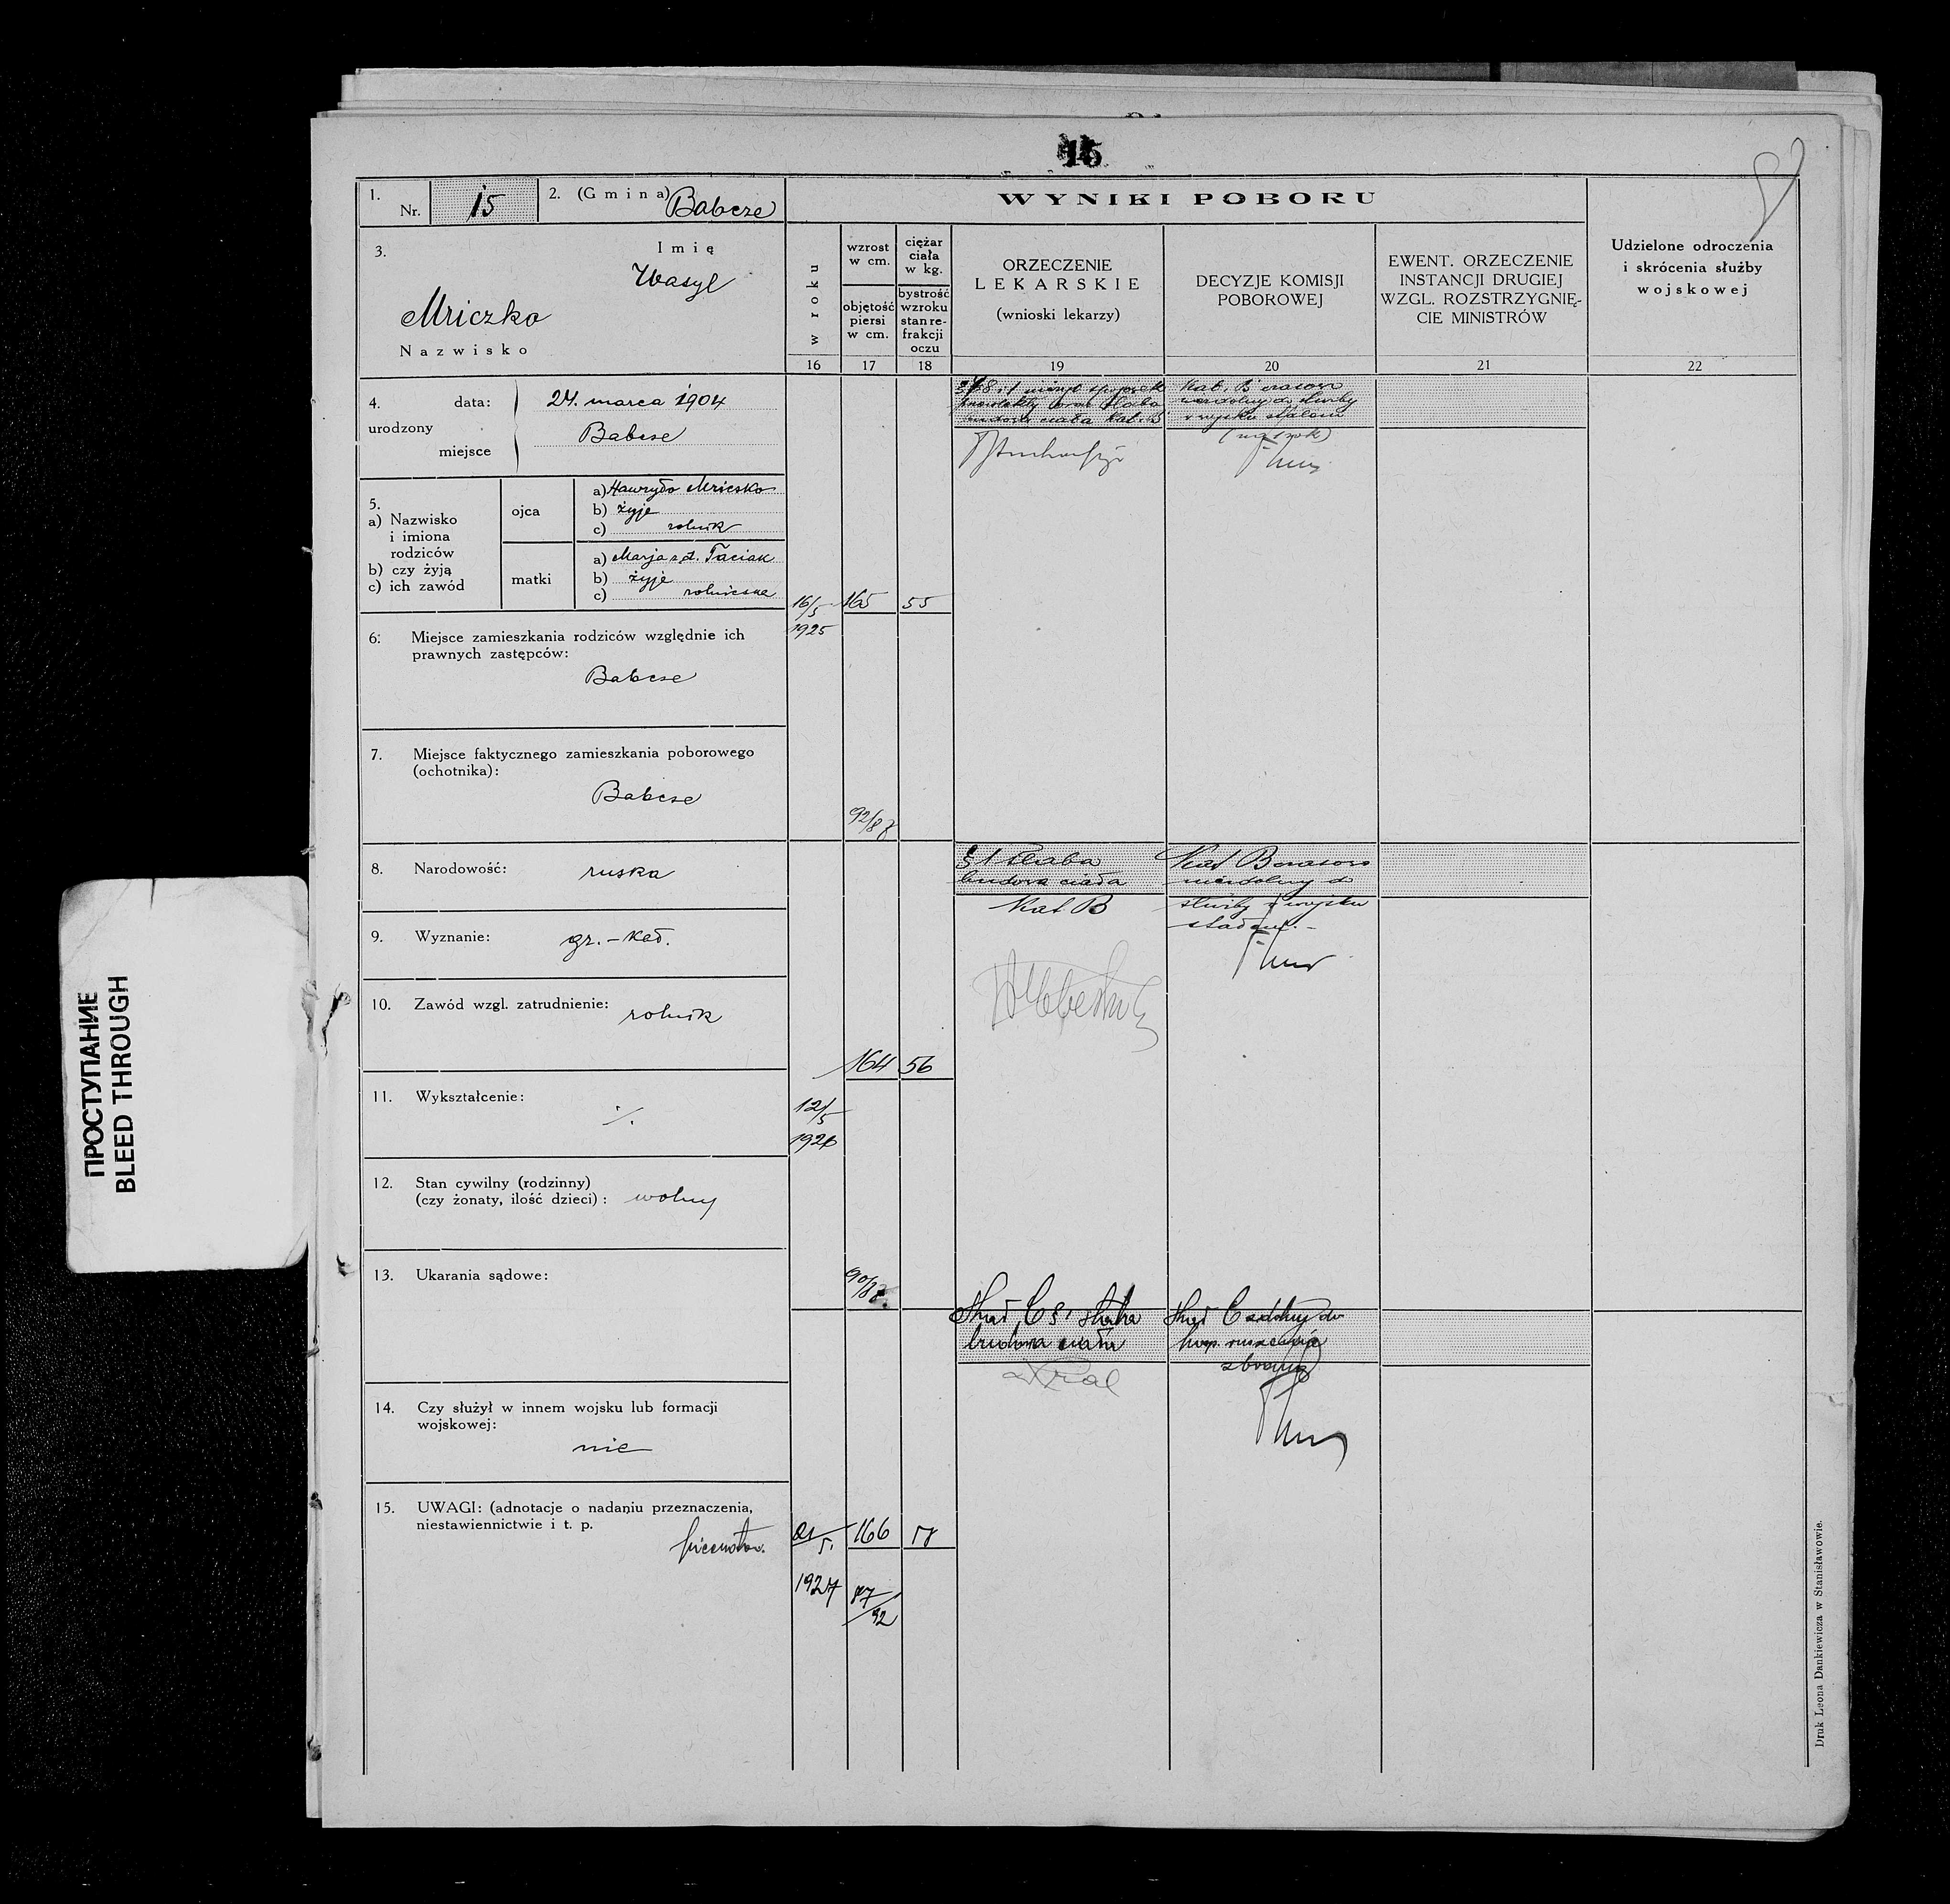 15
1.
Nr. 15
2. (Gmina) Babcze
WYNIKI POBORU
3.
Imię
Wasyl
Mriczko
Nazwisko
w roku
wzrost
w cm.
objętość
piersi
w cm.
ciężar
ciała
w kg.
bystrość
wzroku
stan re-
frakcji
oczu
ORZECZENIE
LEKARSKIE
(wnioski lekarzy)
DECYZJE KOMISJI
POBOROWEJ
EWENT. ORZECZENIE
INSTANCJI DRUGIEJ
WZGL. ROZSTRZYGNIĘ-
CIE MINISTRÓW
Udzielone odroczenia
i skrócenia służby
wojskowej
16 17 18 19 20 21 22
4. data: 24. marca 1904
urodzony
miejsce Babcze
5.
a) Nazwisko
i imiona
rodziców
b) czy żyją
c) ich zawód
ojca
a) Hawryło Mriczko
b) żyje
c) rolnik
matki
a) Marja z d. Taciak
b) żyje
c) rolniczka
6: Miejsce zamieszkania rodziców względnie ich
prawnych zastępców:
Babcze
7. Miejsce faktycznego zamieszkania poborowego
(ochotnika):
Babcze
8. Narodowość: ruska
9. Wyznanie: gr.-kat.
10. Zawód wzgl. zatrudnienie: rolnik
11. Wykształcenie: ./.
12. Stan cywilny (rodzinny)
(czy żonaty, ilość dzieci): wolny
13. Ukarania sądowe:
14. Czy służył w innem wojsku lub formacji
wojskowej:
nie
15. UWAGI: (adnotacje o nadaniu przeznaczenia,
niestawiennictwie i t. p.
16/5 165 55
1925
budowa ciała Kat. B
Kat. B czasowo
niezdolny do służby
w wojsku stałem
(na 1 rok)
§ 1 słaba
budowa ciała
Kat B
Kat B czasowo
niezdolny do
służby w wojsku
stałem.-
164 56
12/5
1926
Kat C § 1 słaba
budowa ciała
Kat C zdolny do
posp. ruszenia
z bronią
Kral
21/5. 166 58
1927 87/92
Druk Leona Dankiewicza w Stanisławowie.
ПРОСТУПАНИЕ
BLEED THROUGH